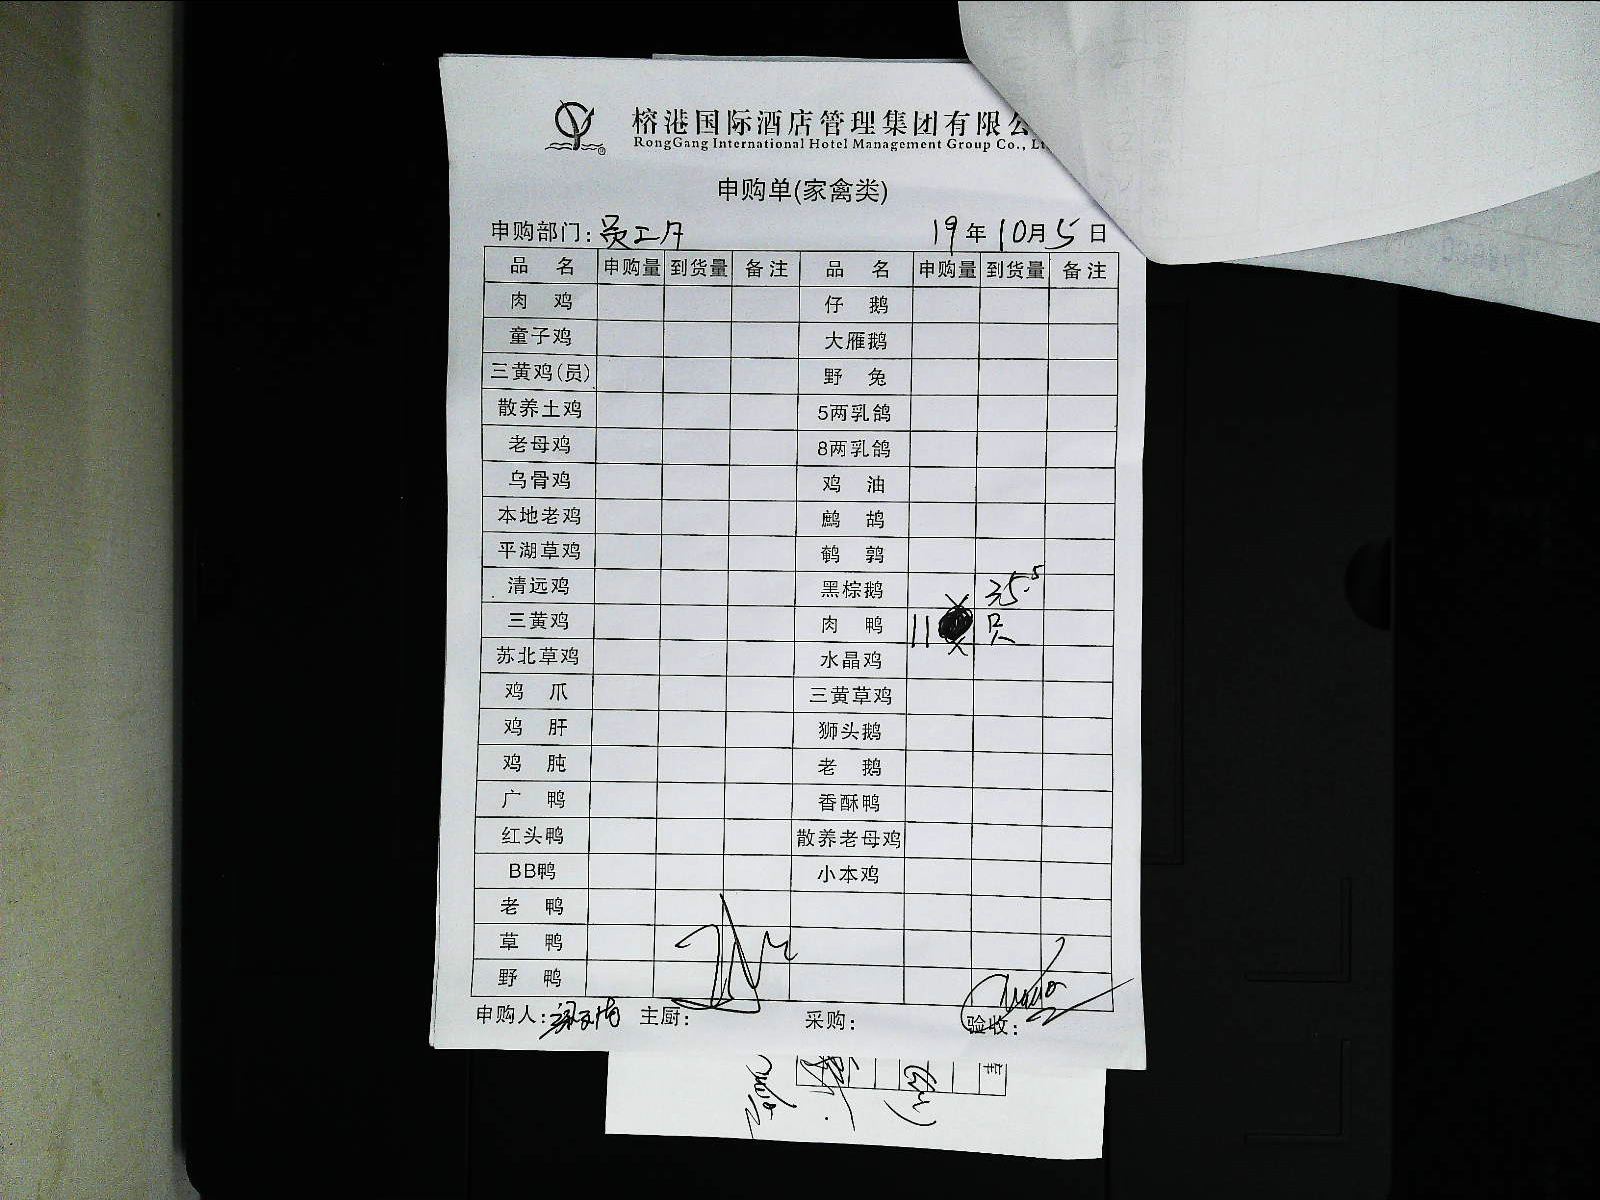 榕港国际酒店管理集团有限公
RongGang International Hotel Management Group Co., L
申购单(家禽类)
申购部门: 员工 19年10月5日
品 名 申购量 到货量 备注 品 名 申购量 到货量 备注
肉 鸡 仔 鹅
童子鸡 大雁鹅
三黄鸡(员) 野 兔
散养土鸡 5两乳鸽
老母鸡 8两乳鸽
乌骨鸡 鸡 油
本地老鸡 鹧 鸪
平湖草鸡 鹌 鹑
清远鸡 黑棕鹅 35.5
三黄鸡 肉 鸭 11 只
苏北草鸡 水晶鸡
鸡 爪 三黄草鸡
鸡 肝 狮头鹅
鸡 肫 老 鹅
广 鸭 香酥鸭
红头鸭 散养老母鸡
BB鸭 小本鸡
老 鸭
草 鸭
野 鸭
申购人: 主厨: 采购: 验收: